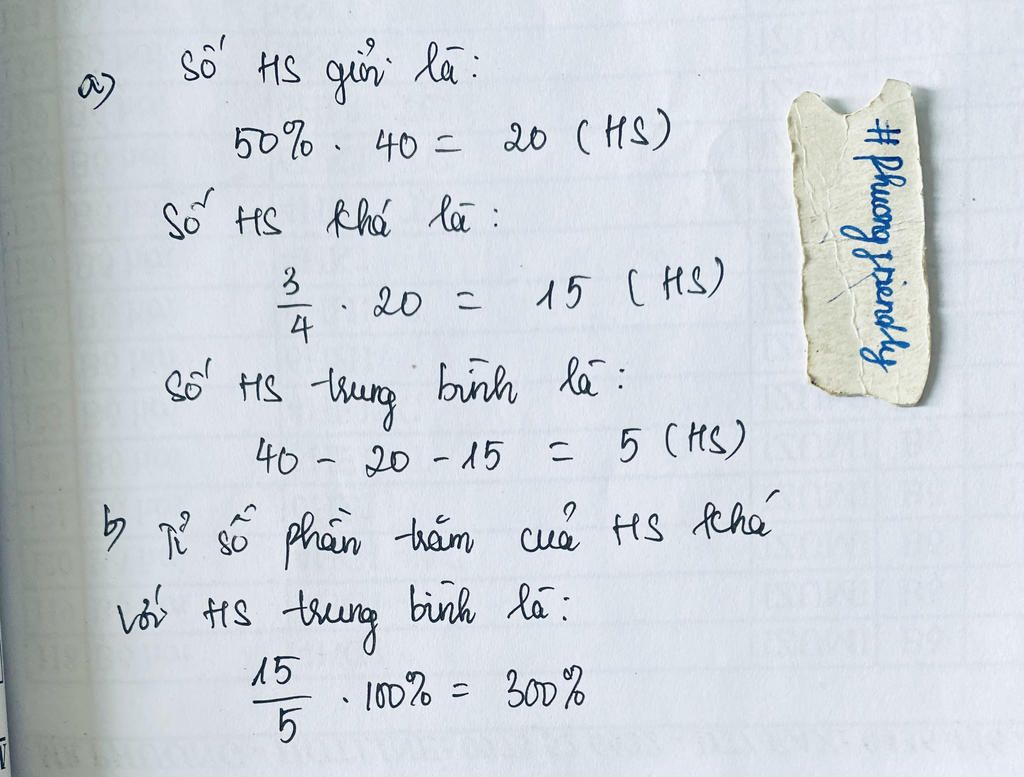 a) Số HS giỏi là:
50% . 40 = 20 (HS)
Số HS khá là:
3/4 . 20 = 15 (HS)
Số HS trung bình là:
40 - 20 - 15 = 5 (HS)
b) Tỉ số phần trăm của HS khá
với HS trung bình là:
15/5 . 100% = 300%
#phuongfriendly